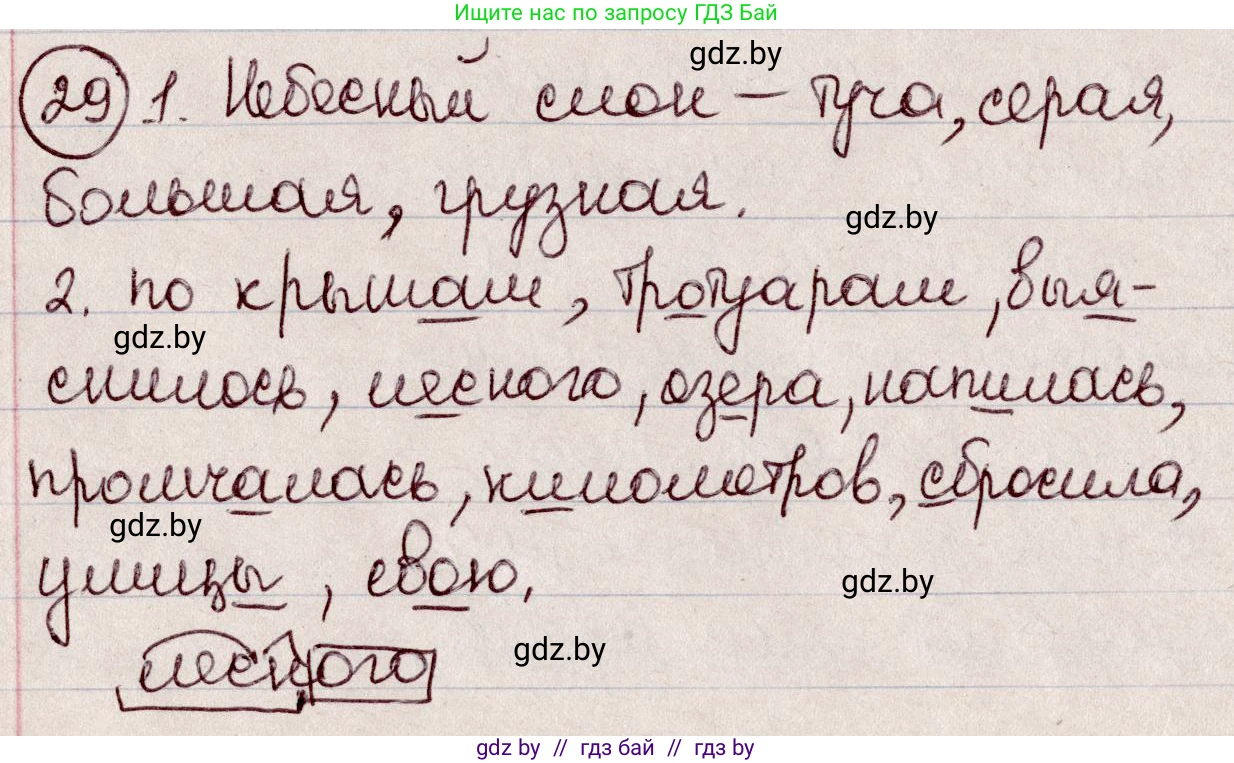 Ищите нас по запросу ГДЗ Бай
gdz.by
29 1. Небесный слон – туча, серая,
большая, грузная.
gdz.by
2. по крышам, тротуарам, выя-
gdz.by
снилось, лесного, озера, напилась,
промчалась, километров, сбросила,
gdz.by
улицы, свою.
gdz.by
gdz.by
лесного
gdz by // гдз бай // гдз by